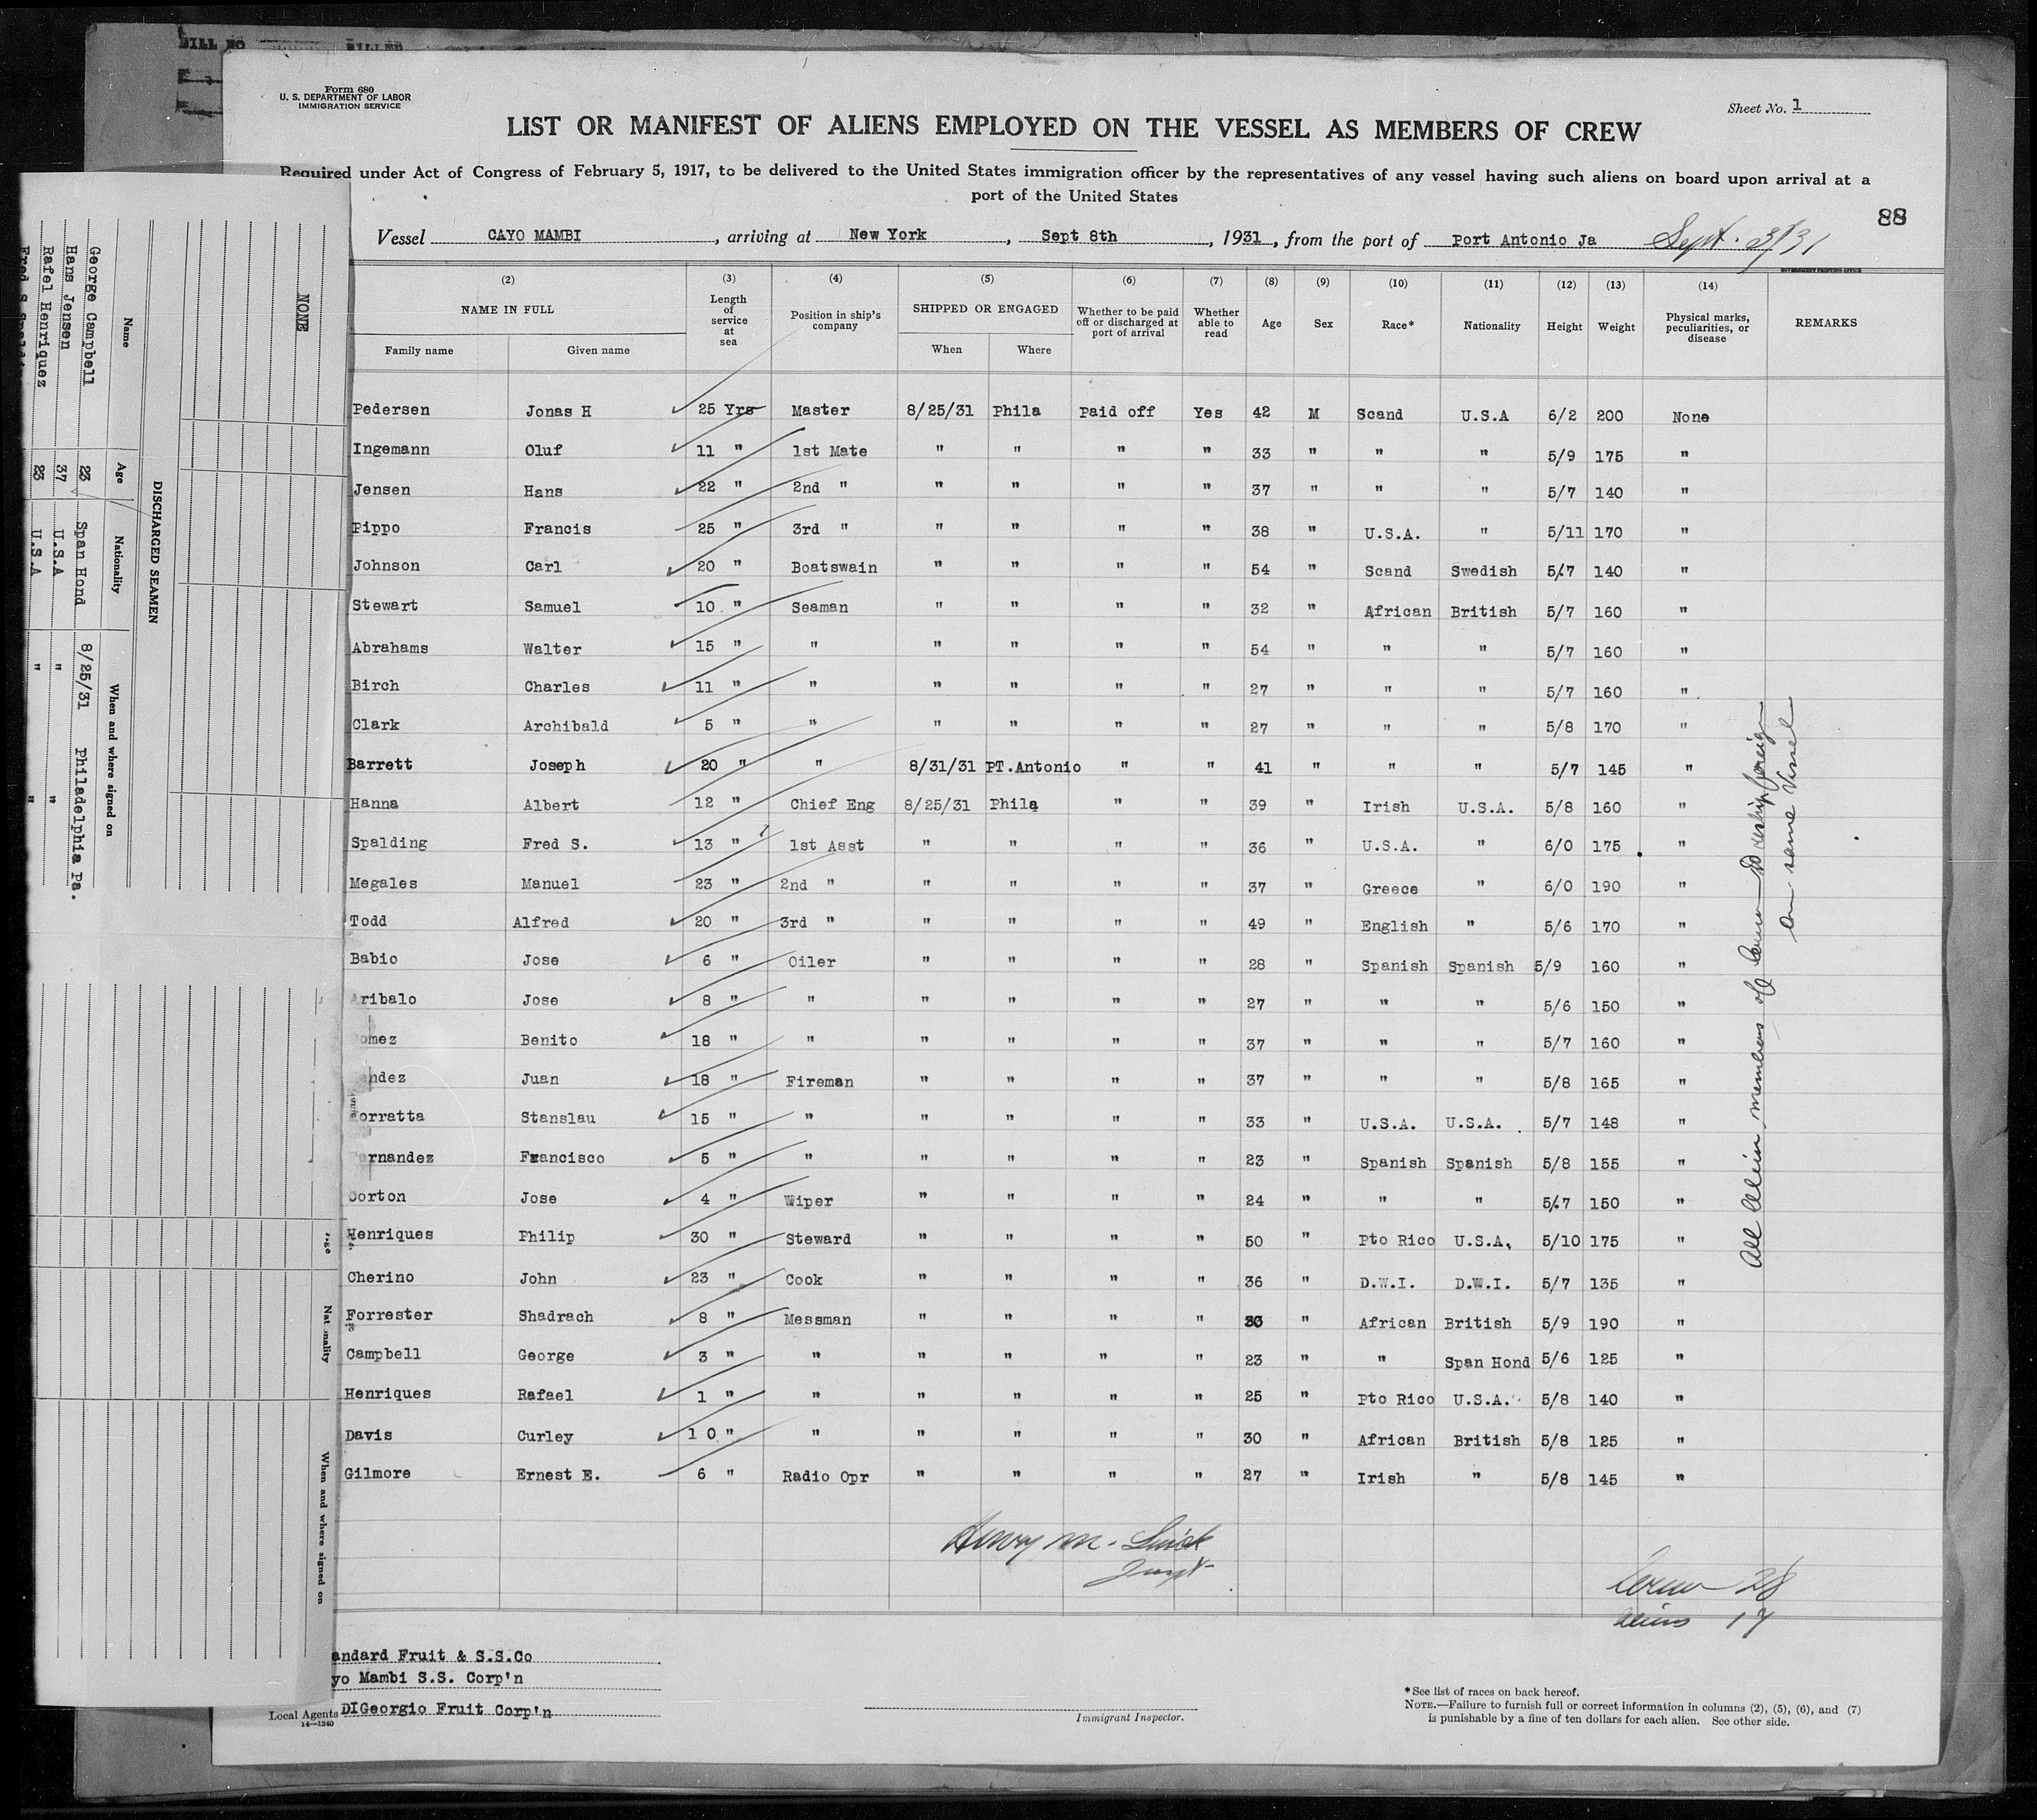 Form 680
U. S. DEPARTMENT OF LABOR
IMMIGRATION SERVICE
Sheet No. 1
LIST OR MANIFEST OF ALIENS EMPLOYED ON THE VESSEL AS MEMBERS OF CREW
Required under Act of Congress of February 5, 1917, to be delivered to the United States immigration officer by the representatives of any vessel having such aliens on board upon arrival at a
port of the United States
88
Vessel CAYO MAMBI, arriving at New York, Sept 8th, 1931, from the port of Port Antonio Ja Sept. 3/31
(2) (3) (4) (5) (6) (7) (8) (9) (10) (11) (12) (13) (14)
NAME IN FULL Length of service at sea Position in ship's company SHIPPED OR ENGAGED Whether to be paid off or discharged at port of arrival Whether able to read Age Sex Race* Nationality Height Weight Physical marks, peculiarities, or disease REMARKS
Family name Given name When Where
Pedersen Jonas H 25 Yrs Master 8/25/31 Phila Paid off Yes 42 M Scand U.S.A 6/2 200 None
Ingemann Oluf 11 " 1st Mate " " " " 33 " " " 5/9 175 "
Jensen Hans 22 " 2nd " " " " " 37 " " " 5/7 140 "
Pippo Francis 25 " 3rd " " " " " 38 " U.S.A. " 5/11 170 "
Johnson Carl 20 " Boatswain " " " " 54 " Scand Swedish 5/7 140 "
Stewart Samuel 10 " Seaman " " " " 32 " African British 5/7 160 "
Abrahams Walter 15 " " " " " " 54 " " " 5/7 160 "
Birch Charles 11 " " " " " " 27 " " " 5/7 160 "
Clark Archibald 5 " " " " " " 27 " " " 5/8 170 "
Barrett Joseph 20 " " 8/31/31 PT.Antonio " " 41 " " " 5/7 145 "
Hanna Albert 12 " Chief Eng 8/25/31 Phila " " 39 " Irish U.S.A. 5/8 160 "
Spalding Fred S. 13 " 1st Asst " " " " 36 " U.S.A. " 6/0 175 "
Megales Manuel 23 " 2nd " " " " " 37 " Greece " 6/0 190 "
Todd Alfred 20 " 3rd " " " " " 49 " English " 5/6 170 "
Babio Jose 6 " Oiler " " " " 28 " Spanish Spanish 5/9 160 "
Aribalo Jose 8 " " " " " " 27 " " " 5/6 150 "
omez Benito 18 " " " " " " 37 " " " 5/7 160 "
ndez Juan 18 " Fireman " " " " 37 " " " 5/8 165 "
orratta Stanslau 15 " " " " " " 33 " U.S.A. U.S.A. 5/7 148 "
ernandez Francisco 5 " " " " " " 23 " Spanish Spanish 5/8 155 "
Corton Jose 4 " Wiper " " " " 24 " " " 5/7 150 "
Henriques Philip 30 " Steward " " " " 50 " Pto Rico U.S.A. 5/10 175 "
Cherino John 23 " Cook " " " " 36 " D.W.I. D.W.I. 5/7 135 "
Forrester Shadrach 8 " Messman " " " " 30 " African British 5/9 190 "
Campbell George 3 " " " " " " 23 " " Span Hond 5/6 125 "
Henriques Rafael 1 " " " " " " 25 " Pto Rico U.S.A. 5/8 140 "
Davis Curley 10 " " " " " " 30 " African British 5/8 125 "
Gilmore Ernest E. 6 " Radio Opr " " " " 27 " Irish " 5/8 145 "
All Alein members of Crew to reship foreign
on same Vessel
Henry M.
Crew 28
aliens 17
andard Fruit & S.S.Co
yo Mambi S.S. Corp'n
Local Agents DIGeorgio Fruit Corp'n
14—1240
Immigrant Inspector.
*See list of races on back hereof.
NOTE.—Failure to furnish full or correct information in columns (2), (5), (6), and (7)
is punishable by a fine of ten dollars for each alien. See other side.
NONE
DISCHARGED SEAMEN
Name Age Nationality When and where signed on
George Campbell 23 Span Hond 8/25/31 Philadelphia Pa.
Hans Jensen 37 U.S.A " "
Rafel Henriquez 23 U.S.A " "
Nationality When and where signed on